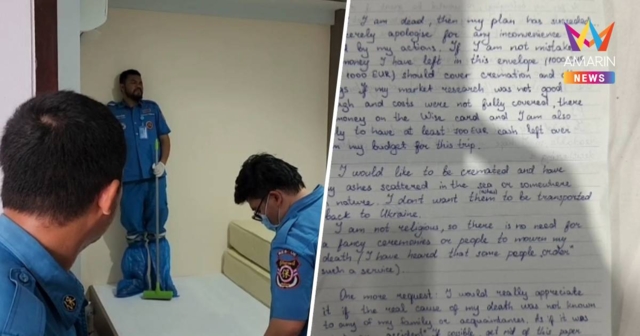 I am dead, then my plan has succeeded
apologise for any inconvenience
by my actions. If I am not mistaken
money I have left in this envelope (1000
1000 EUR) should cover cremation and
If my market research was not good
and costs were not fully covered, there
money on the Wise card and I am also
to have at least 200 EUR cash left over
my budget for this trip.
I would like to be cremated and have
my ashes scattered in the sea or somewhere
nature. I don't want them to be transported
back to Ukraine.
I am not religious, so there is no need for
a fancy ceremonies or people to mourn my
death (I have heard that some people "order"
such a service)
One more request: I would really appreciate
it if the real cause of my death was not known
to any of my family or acquaintances. As if it was
accident. If possible, get rid of this paper
AMARIN
NEWS